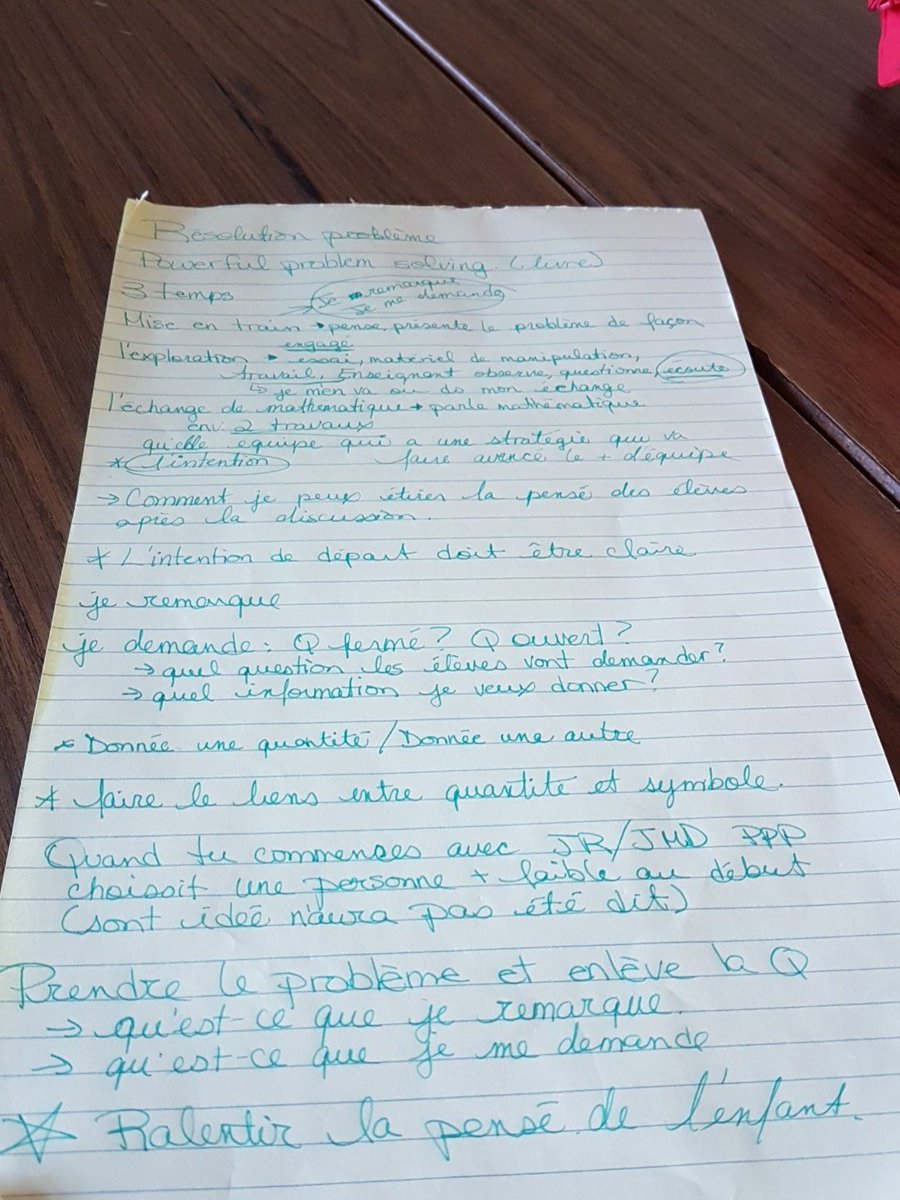 Résolution problème
Powerful problem solving. (livre)
3 temps
je remarque
je me demande
Mise en train → pense, présente le problème de façon
engage
l'exploration → essai, matériel de manipulation,
travail, Enseignant observe, questionne, écoute
↳ je m'en va où ds mon échange
l'échange de mathématique → parle mathématique
env. 2 travaux
qu'elle équipe qui a une stratégie que va
faire avancé le + d'équipe
* l'intention
→ Comment je peux étirer la pensé des élèves
après la discussion.
* L'intention de départ doit être claire
je remarque
je demande: Q fermé? Q ouvert?
→ quel question les élèves vont demander?
→ quel information je veux donner?
* Donnée une quantité / Donnée une autre
* faire le liens entre quantité et symbole.
Quand tu commences avec JR/JMD PPP
choissit une personne + faible au début
(sont idée n'aura pas été dit)
Prendre le problème et enlève la Q
→ qu'est-ce que je remarque.
→ qu'est-ce que je me demande
☆ Ralentir la pensé de l'enfant.